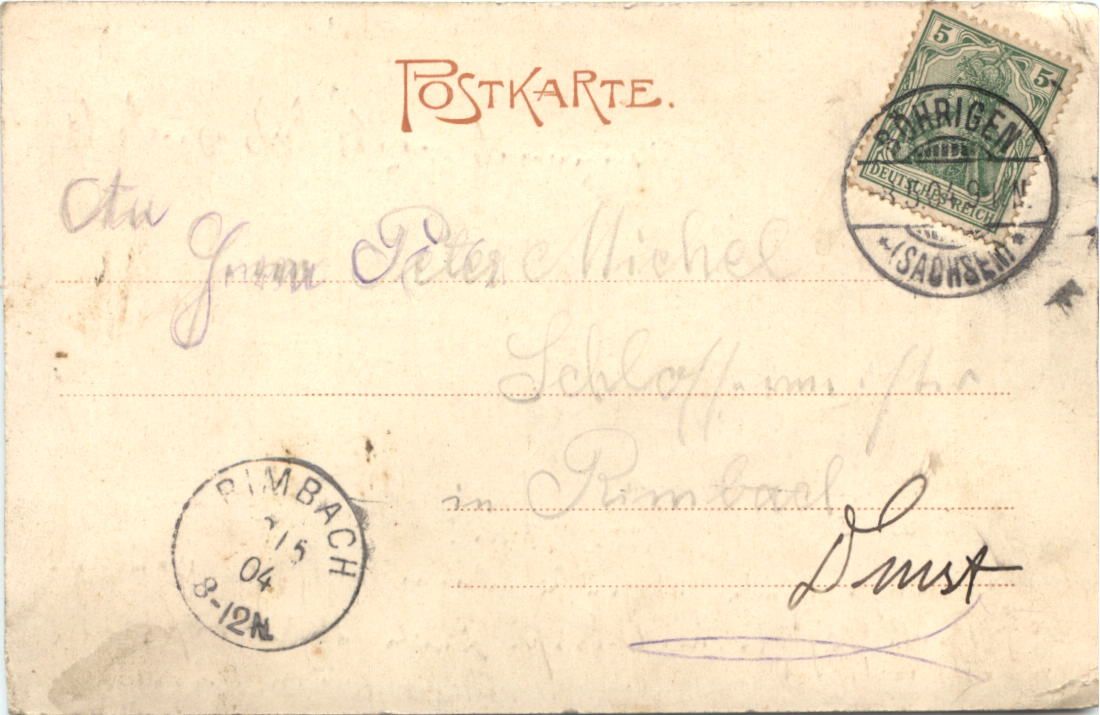 POSTKARTE.
5 5
DEUTSCHES REICH
RÖHRIGEN
3.5.04.9 N.
*(SACHSEN)*
An
Herrn Peter Michel
Schlossermeister
in Rimbach
RIMBACH
/5
04
8-12N.